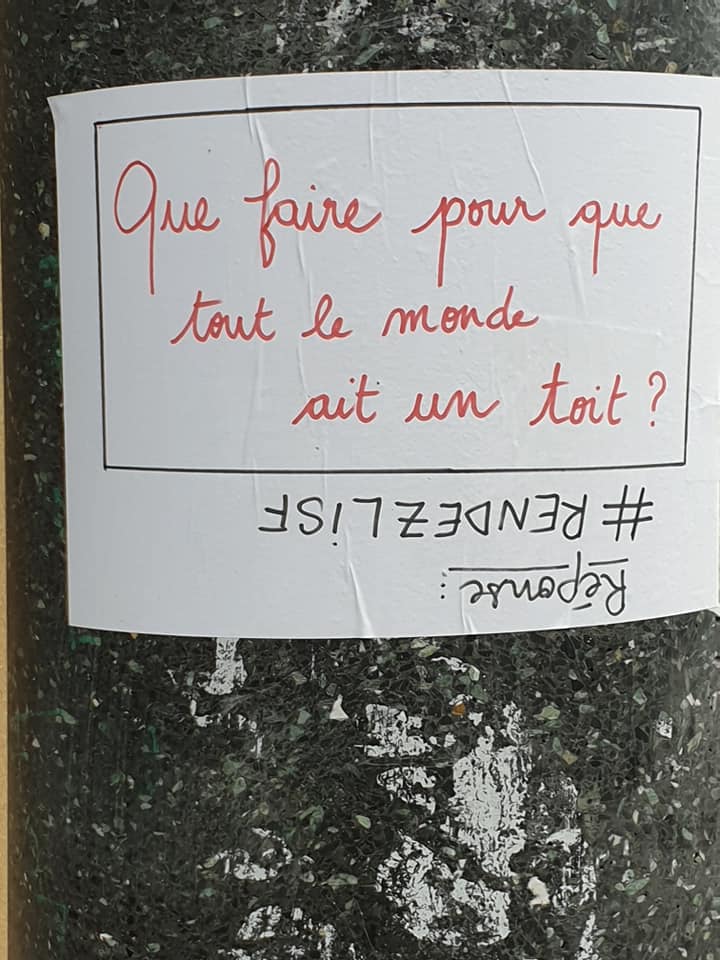 Que faire pour que
tout le monde
ait un toit ?
Réponse :
#RENDEZ L'ISF